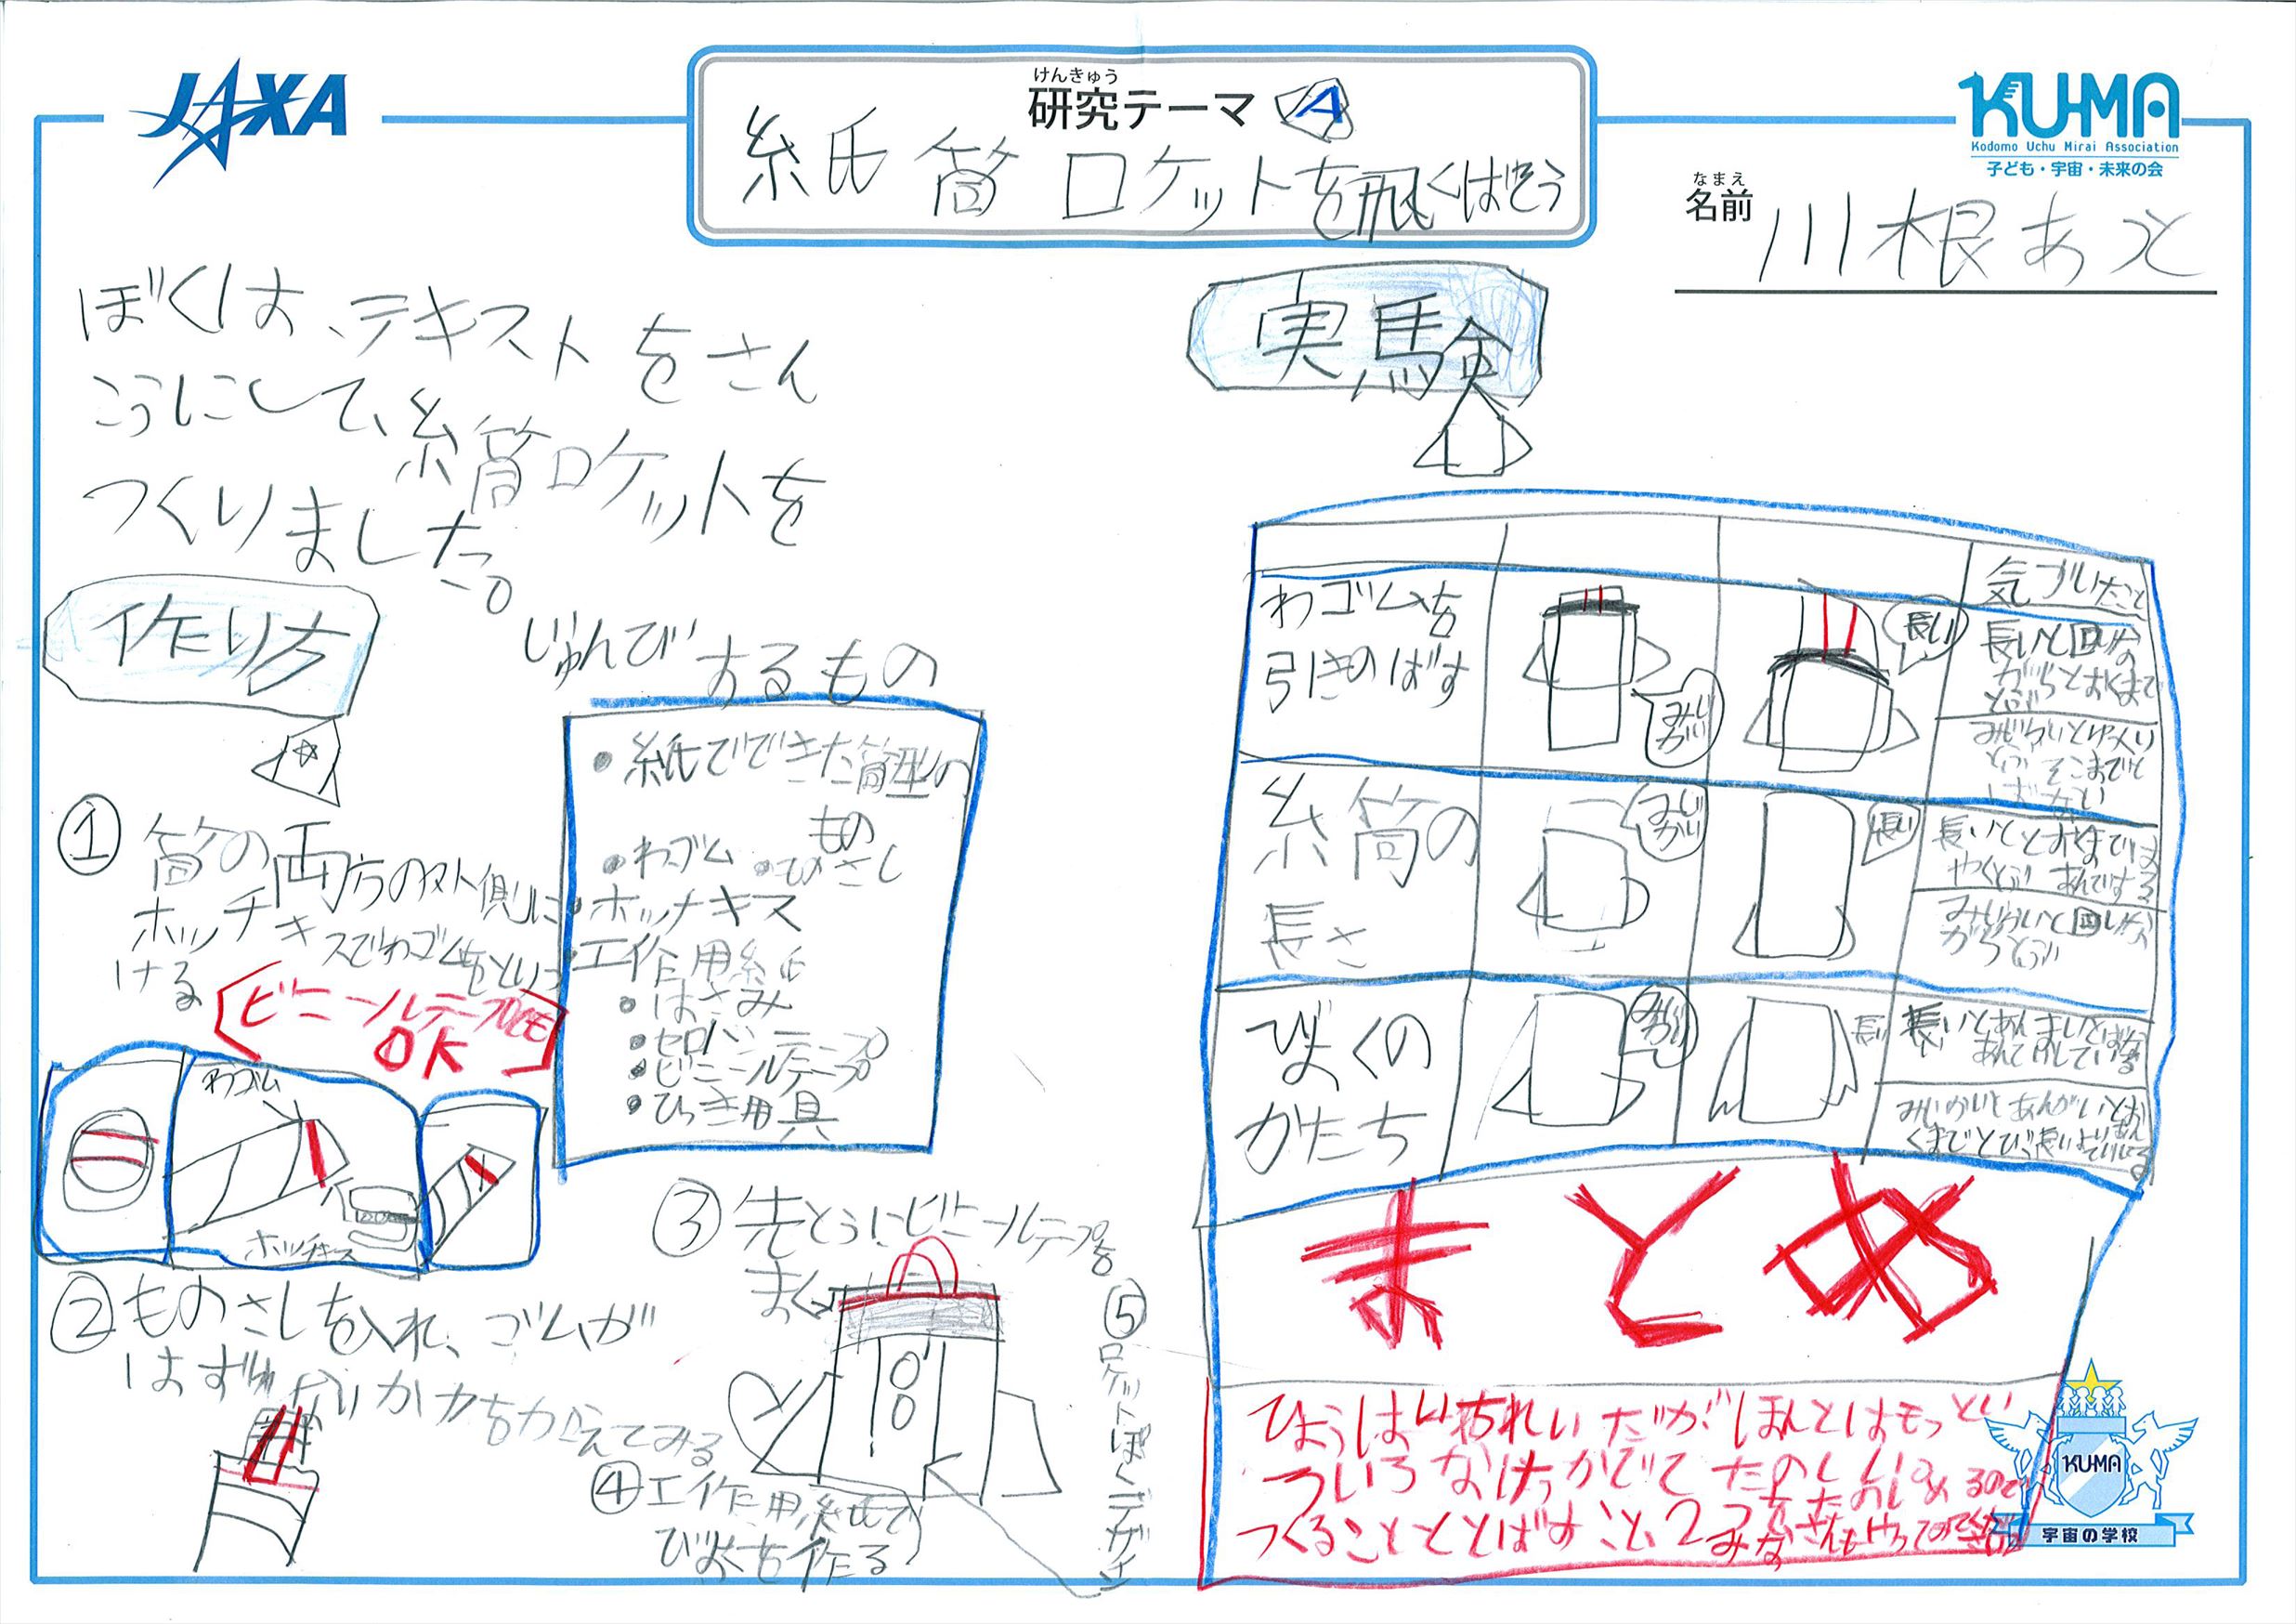 JAXA
けんきゅう
研究テーマ A
紙筒ロケットを飛くばそう
KU-MA
Kodomo Uchu Mirai Association
子ども・宇宙・未来の会
なまえ
名前 川根あと
ぼくは、テキストをさん
こうにして、糸筒ロケットを
つくりました。
作り方
じゅんびするもの
・紙でできた筒型の
もの
・わゴム ・ものさし
・ホッチキス
工作用紙
・はさみ
・セロハンテープ
・ビニールテープ
・ひっき用具
① 筒の両方の外側に
ホッチキスでわゴムをとりつ
ける
ビニールテープでも
OK
わゴム
ホッチキス
② ものさしを入れ、ゴムが
はずれないか力をかえてみる
③ 先とうにビニールテープを
まく
④ 工作用紙で
びよくを作る
⑤ ロケットぱくデザイン
実験
気づいたこと
わゴムを
引きのばす
みじかい
長い
長いと回りな
がらとおくまで
とぶ
みじかいとゆっくり
とぶ そこまでと
ばない
糸筒の
長さ
みじかい
長い
長いととおくまでは
やくとぶ
みじかいと回りな
がらとぶ
びよくの
かたち
みじかい
長い
長いとあんまりとばない
あんていしている
みじかいとあんがいとお
くまでとび長いよりあん
ていしてる
まとめ
ひょうはいちれいだがほんとはもっとい
ついろなけっかがでてたのしい
つくることととばすこと、2つをたのしめるので
みなさんもやってみてください
KUMA
宇宙の学校